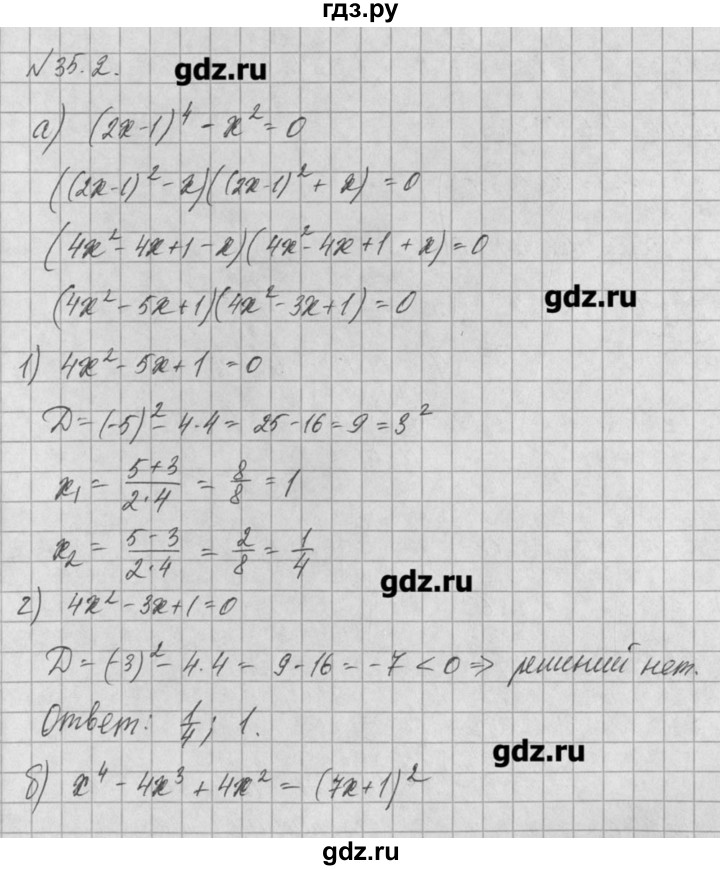 гдз.ру
№ 35.2.
gdz.ru
а) (2x-1)⁴ - x² = 0
((2x-1)² - x)((2x-1)² + x) = 0
(4x² - 4x + 1 - x)(4x² - 4x + 1 + x) = 0
gdz.ru
(4x² - 5x + 1)(4x² - 3x + 1) = 0
1) 4x² - 5x + 1 = 0
D = (-5)² - 4·4 = 25 - 16 = 9 = 3²
x₁ = (5+3)/(2·4) = 8/8 = 1
x₂ = (5-3)/(2·4) = 2/8 = 1/4
gdz.ru
2) 4x² - 3x + 1 = 0
D = (-3)² - 4·4 = 9 - 16 = -7 < 0 ⇒ решений нет.
Ответ: 1/4; 1.
gdz.ru
б) x⁴ - 4x³ + 4x² = (7x+1)²
gdz.ru